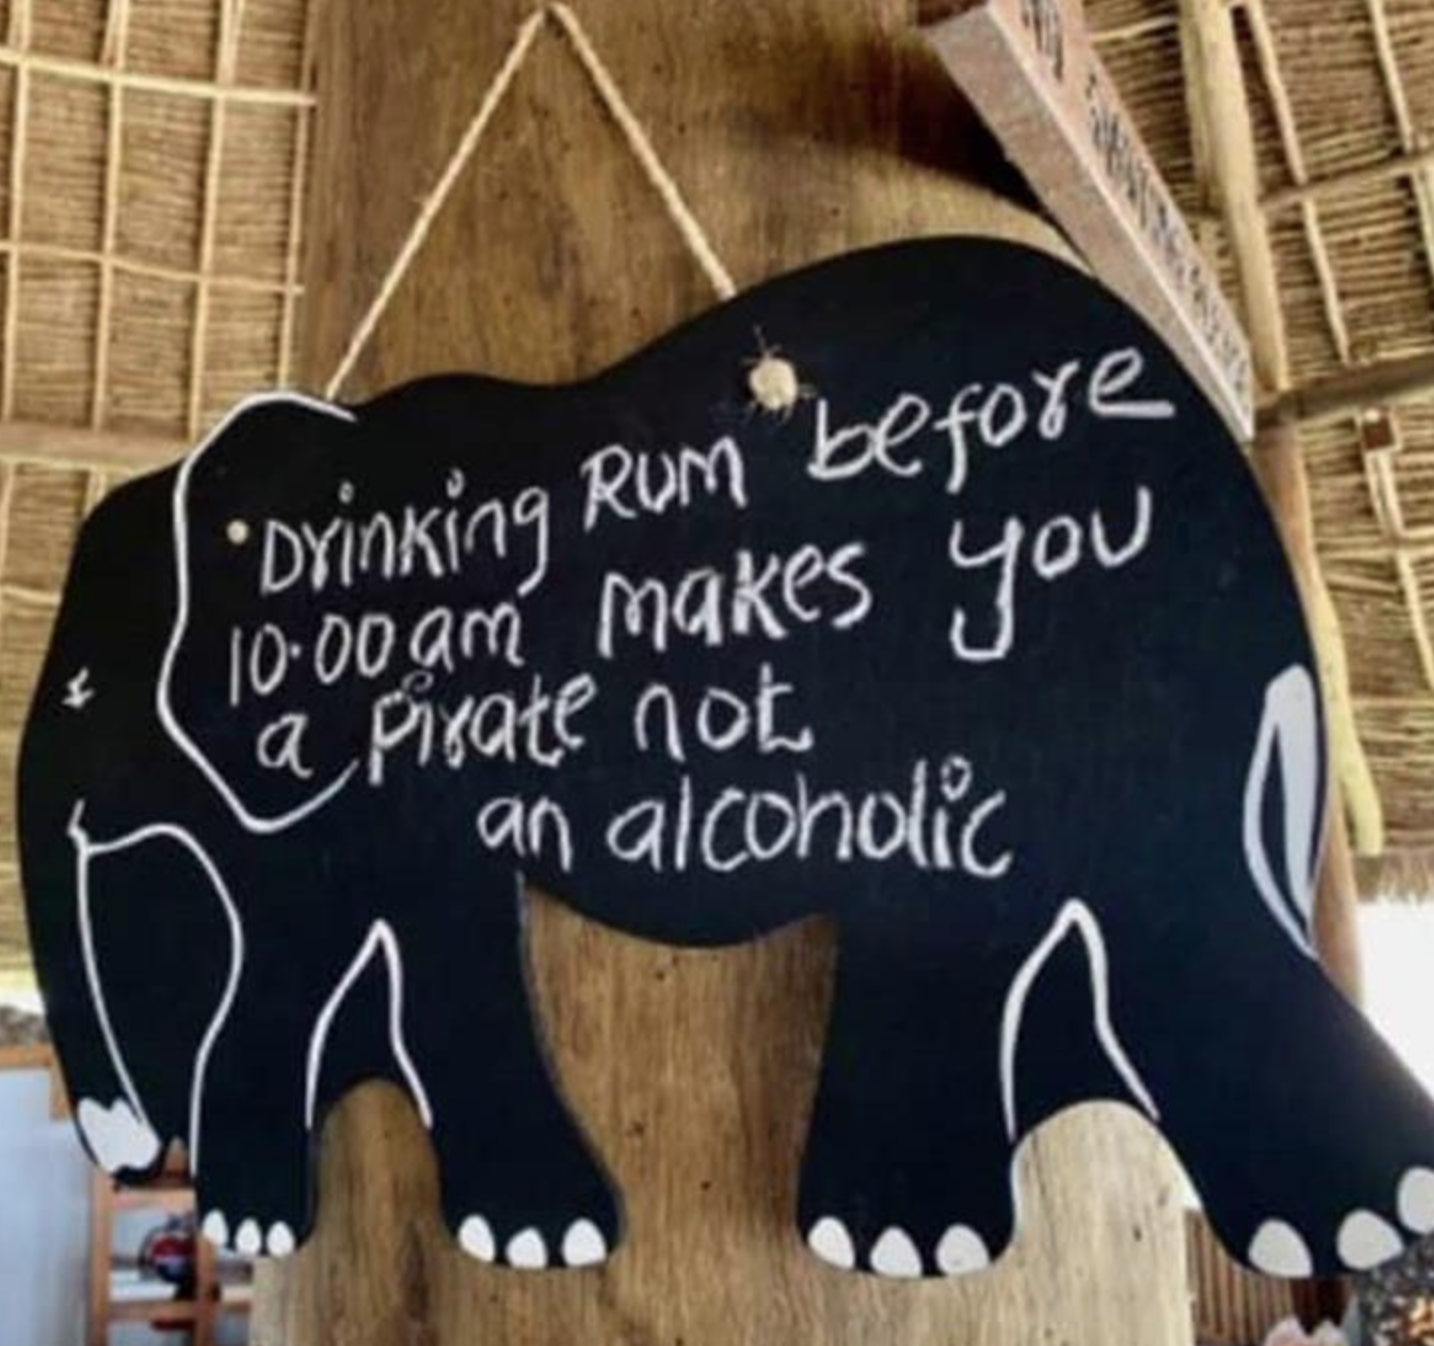 Drinking Rum before
10.00am makes you
a pirate not
an alcoholic